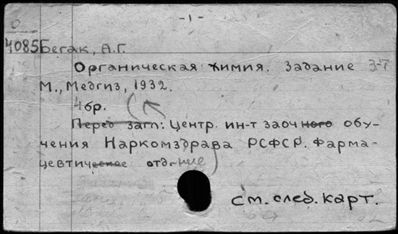 - 1 -
4085 Бегак, А.Г.
Органическая химия. Задание 3-7
М., Медгиз, 1932.
4бр.
Перед загл: Центр. ин-т заочного обу-
чения Наркомздрава РСФСР. Фарма-
цевтическое отд-ние
См. след. карт.